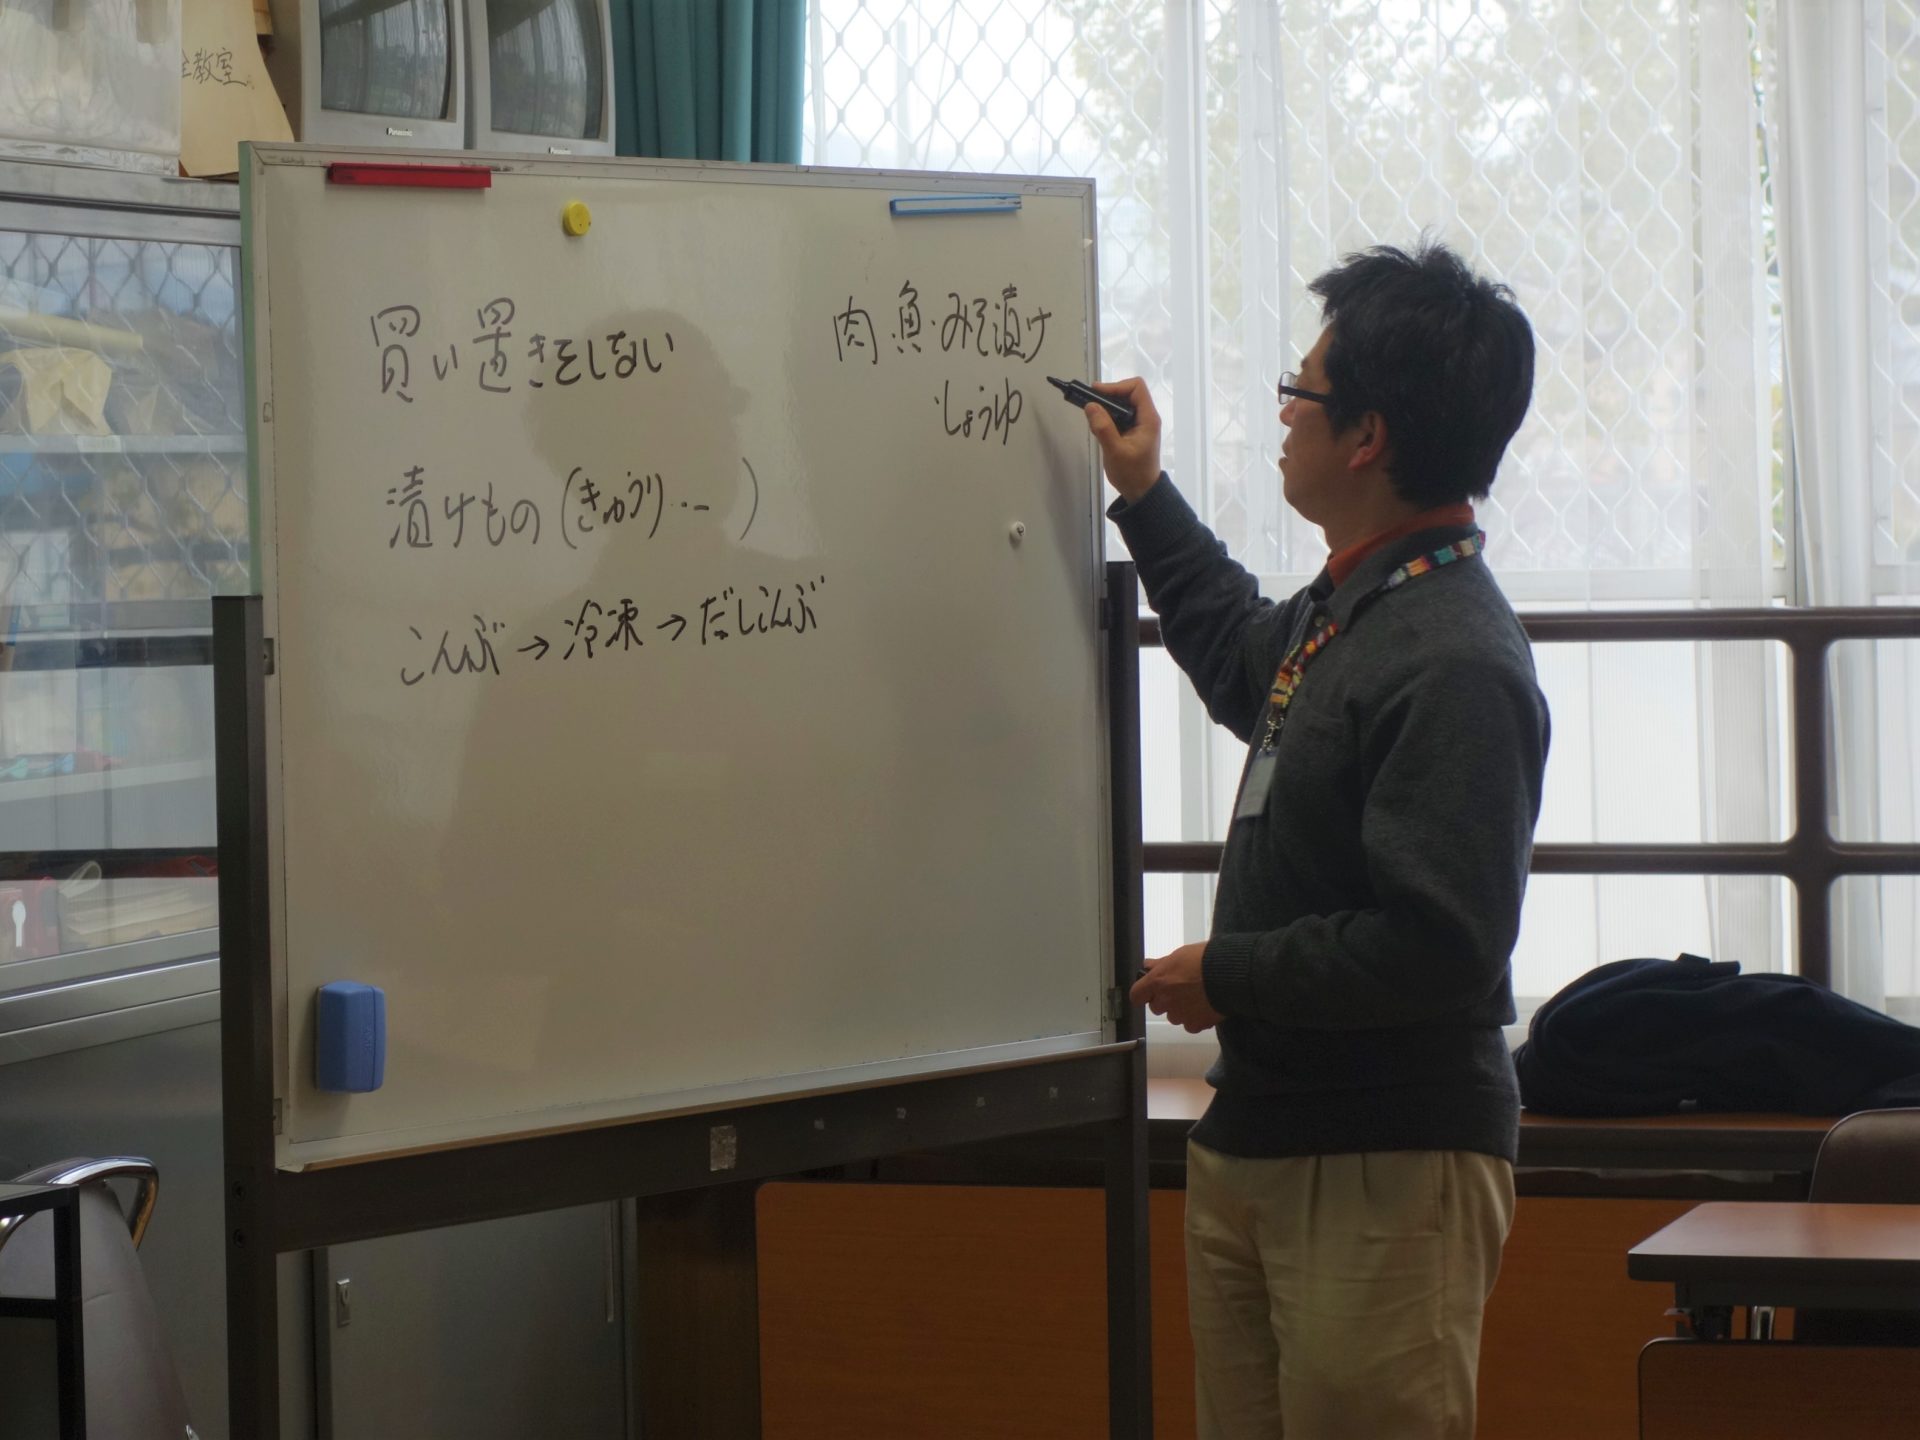 全教室
Panasonic
Panasonic
買い置きをしない
漬けもの(きゅうり・・・ )
こんぶ→冷凍→だしこんぶ
肉 魚・みそ漬け
しょうゆ